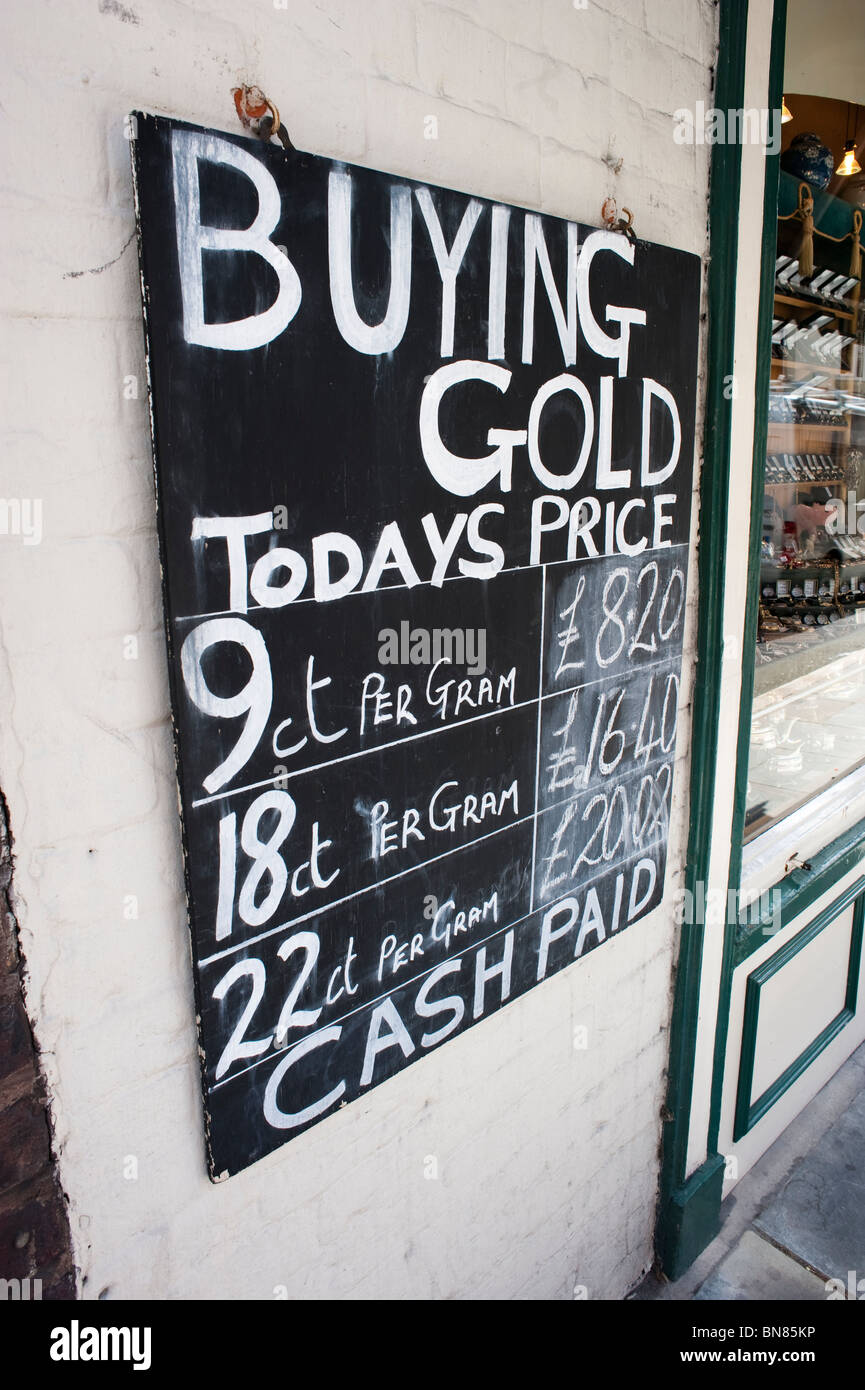 BUYING
GOLD
TODAYS PRICE
9ct PER GRAM £8.20
18ct PER GRAM £16.40
22ct PER GRAM £20.02
CASH PAID
alamy
Image ID: BN85KP
www.alamy.com